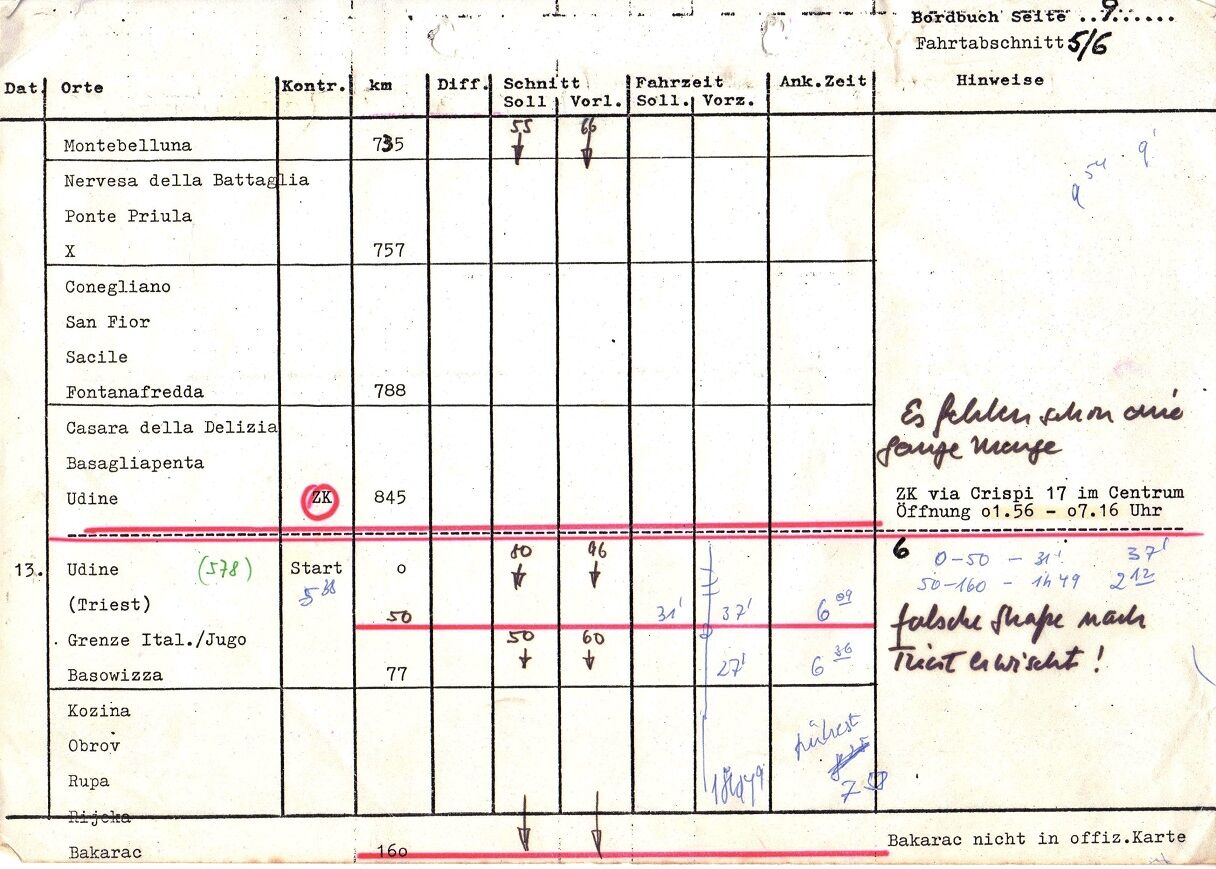 Bordbuch Seite ..9......
Fahrtabschnitt 5/6
Dat. Orte Kontr. km Diff. Schnitt Fahrzeit Ank.Zeit Hinweise
Soll Vorl. Soll. Vorz.
55 66
Montebelluna 735
9 54 9'
Nervesa della Battaglia
Ponte Priula
X 757
Conegliano
San Fior
Sacile
Fontanafredda 788
Es fehlen schon eine
ganze Menge
Casara della Delizia
Basagliapenta
Udine ZK 845
ZK via Crispi 17 im Centrum
Öffnung o1.56 - o7.16 Uhr
80 96
6 0-50 - 31' 37'
13. Udine (578) Start o
50-160 - 1h49 2 12
(Triest) 50 31' 37' 6 09
falsche Straße nach
Triest erwischt!
50 60
Grenze Ital./Jugo
Basowizza 77 27' 6 36
Kozina
Obrov
frühest
Rupa 1h49 7 58
Rijcka
Bakarac 16o
Bakarac nicht in offiz.Karte